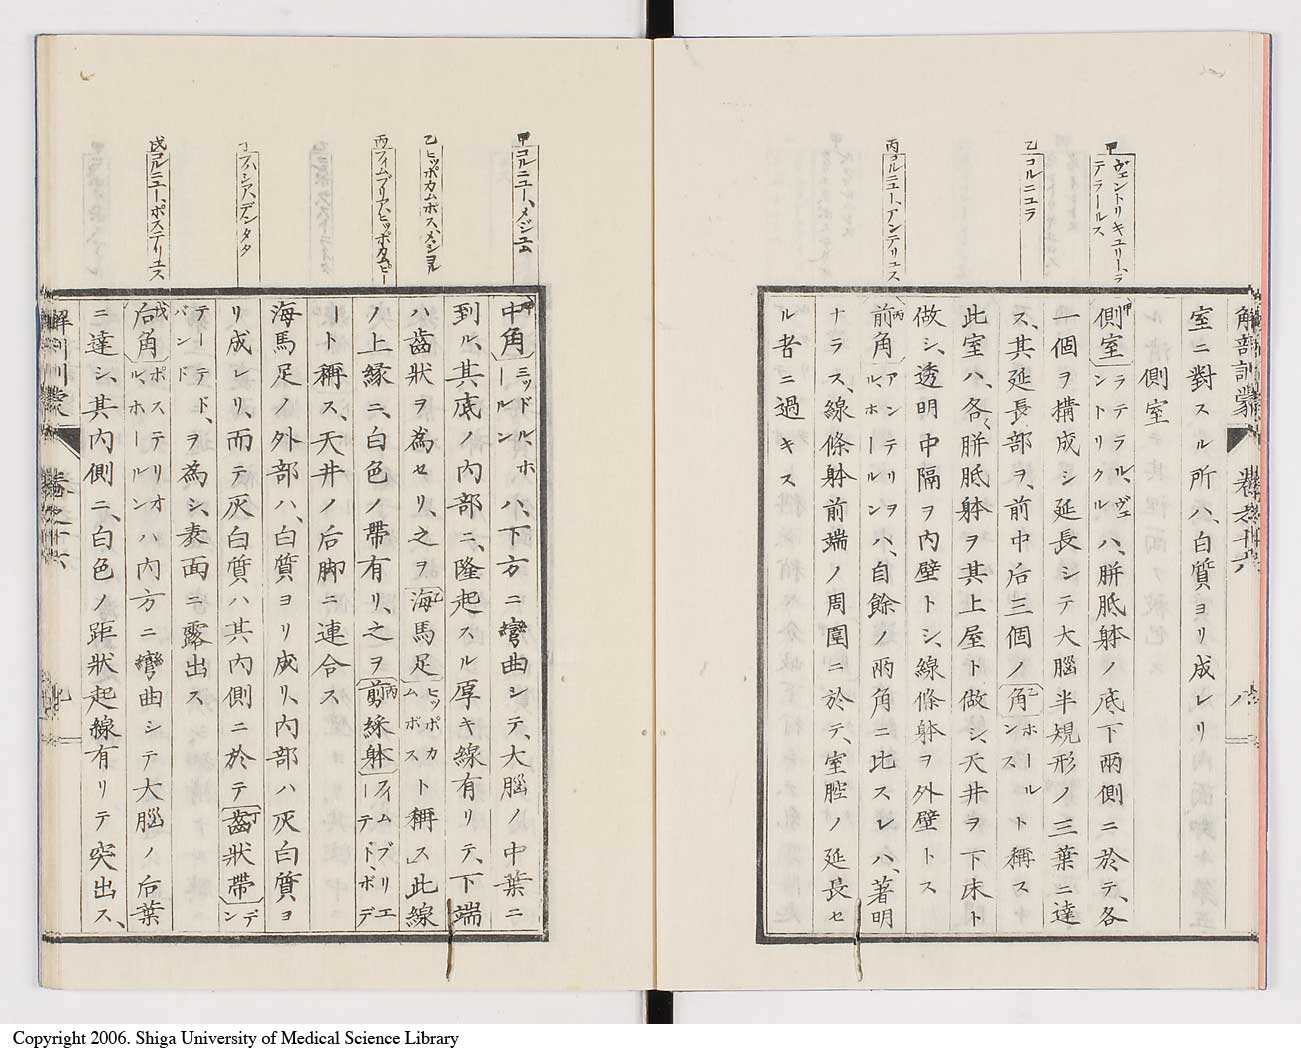 甲 ヴェントリキュリー、ラ
テラールス
乙 コルニュラ
丙 コルニュー、アンテリュス
解剖訓蒙
室ニ對スル所ハ、白質ヨリ成レリ
側室
甲側室 ラテラル、ヴェントリクル ハ、胼胝躰ノ底下兩側ニ於テ、各
一個ヲ構成シ延長シテ大腦半規形ノ三葉ニ達
ス、其延長部ヲ、前中后三個ノ乙角 ホールンス ト稱ス
此室ハ、各〻胼胝躰ヲ其上屋ト做シ、天井ヲ下床ト
做シ、透明中隔ヲ内壁トシ、線條躰ヲ外壁トス
丙前角 アンテリヲルホールン ハ、自餘ノ兩角ニ比スレハ、著明
ナラス、線條躰前端ノ周圍ニ於テ、室腔ノ延長セ
ル者ニ過キス
甲 コルニュー、メジユム
乙 ヒッポカムポス、メジョル
丙 フィムブリアヒッポカムピー
丁 ファシア、デンタタ
戊 コルニュー、ポステリュス
甲中角 ミッドル、ホールン ハ、下方ニ彎曲シテ、大腦ノ中葉ニ
到ル、其底ノ内部ニ、隆起スル厚キ線有リテ、下端
ハ齒狀ヲ為セリ、之ヲ乙海馬足 ヒッポカムポス ト稱ス此線
ノ上縁ニ、白色ノ帶有リ、之ヲ丙剪綵躰 フィムブリエーテドボデ
ー ト稱ス、天井ノ后脚ニ連合ス
海馬足ノ外部ハ、白質ヨリ成リ、内部ハ灰白質ヨ
リ成レリ、而テ灰白質ハ其内側ニ於テ丁齒狀帶 デン
テーテド、バンド ヲ為シ、表面ニ露出ス
戊后角 ポステリオル、ホールン ハ内方ニ彎曲シテ大腦ノ后葉
ニ達シ、其内側ニ、白色ノ距狀起線有リテ突出ス、
Copyright 2006. Shiga University of Medical Science Library